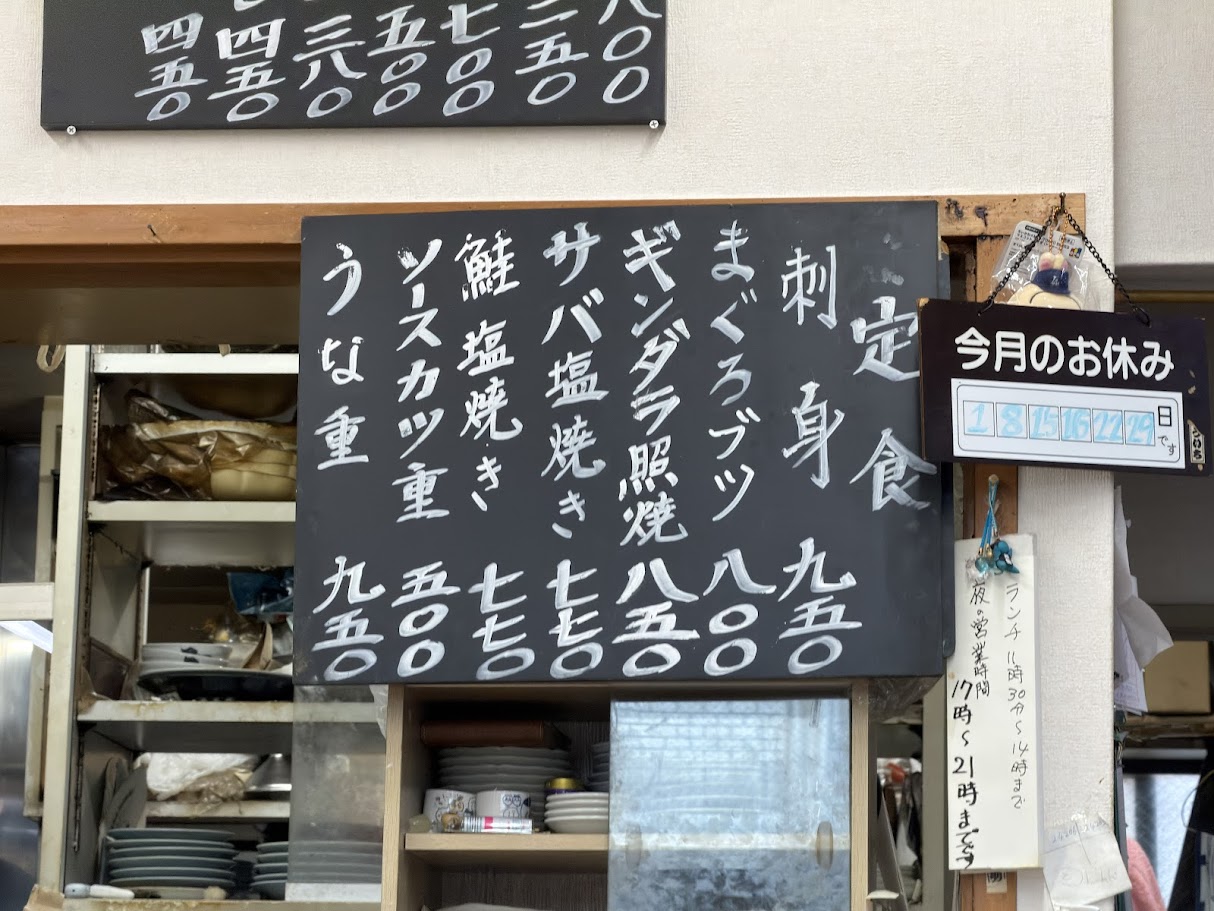 八〇〇
五〇
七〇〇
五〇〇
三八〇
四五〇
四五〇
定食
刺身 九五〇
まぐろブツ 八〇〇
ギンダラ照焼 八五〇
サバ塩焼き 七七〇
鮭塩焼き 七七〇
ソースカツ重 五〇〇
うな重 九五〇
今月のお休み
1 8 15 16 22 29 日です
ランチ 11時30分〜14時まで
夜の営業時間
17時〜21時までです